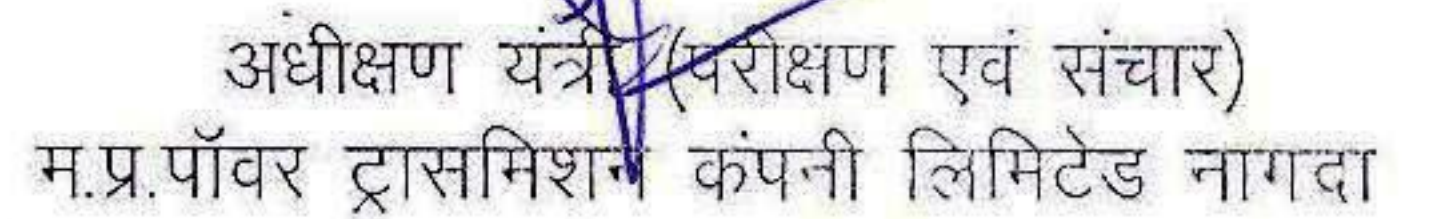 अधीक्षण यंत्री (परीक्षण एवं संचार)
म.प्र.पॉवर ट्रासमिशन कंपनी लिमिटेड नागदा